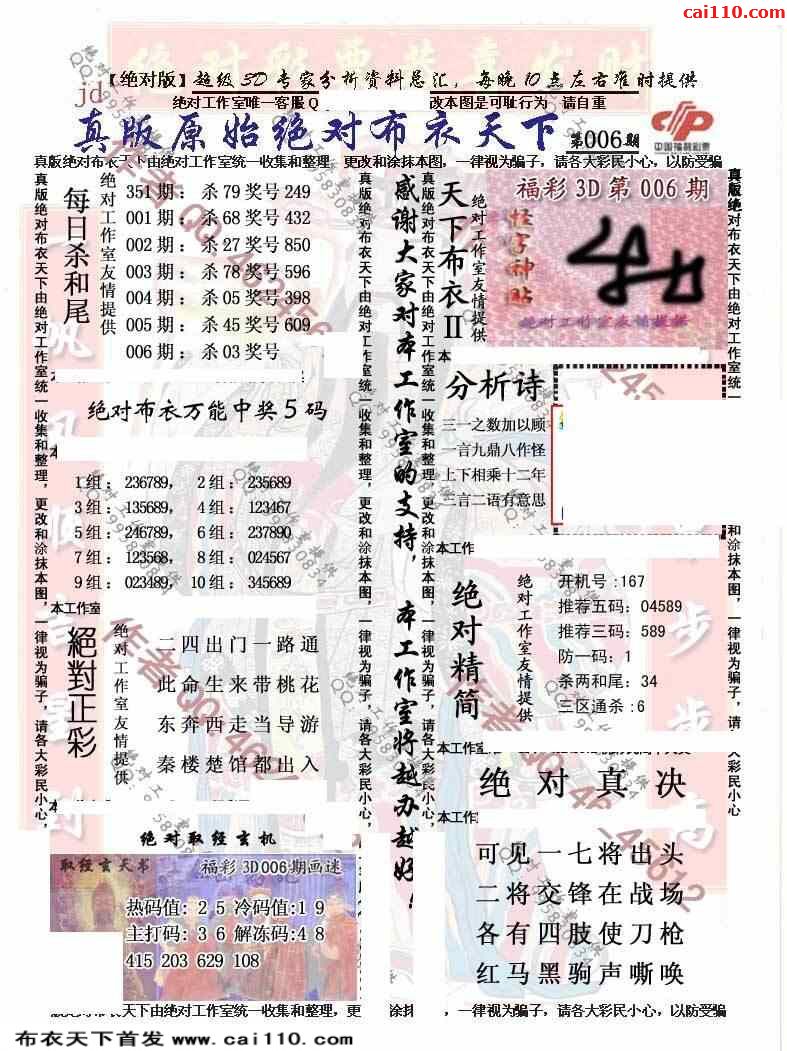 cai110.com
【绝对版】超级3D专家分析资料总汇，每晚10点左右准时提供
jd
绝对工作室唯一客服Q
改本图是可耻行为 请自重
真版原始绝对布衣天下
第006期
中国福利彩票
真版绝对布衣天下由绝对工作室统一收集和整理，更改和涂抹本图，一律视为骗子，请各大彩民小心，以防受骗
真版绝对布衣天下由绝对工作室统一收集和整理，更改和涂抹本图，一律视为骗子，请各大彩民小心，
每日杀和尾
绝对工作室友情提供
351期：杀79奖号249
001期：杀68奖号432
002期：杀27奖号850
003期：杀78奖号596
004期：杀05奖号398
005期：杀45奖号609
006期：杀03奖号
绝对布衣万能中奖5码
1组：236789， 2组：235689
3组：135689， 4组：123467
5组：246789， 6组：237890
7组：123568， 8组：024567
9组：023489， 10组：345689
本工作室
絕對正彩
绝对工作室友情提供
二四出门一路通
此命生来带桃花
东奔西走当导游
秦楼楚馆都出入
绝对取经玄机
取经玄天书
福彩3D006期画迷
热码值：25冷码值:19
主打码：36解冻码:48
415 203 629 108
真版绝对布衣天下由绝对工作室统一收集和整理，更改和涂抹本图，一律视为骗子，请各大彩民小心，
感谢大家对本工作室的支持，本工作室将越办越好！
真版绝对布衣天下由绝对工作室统一收集和整理，更改和涂抹本图，一律视为骗子，请各大彩民小心，
天下布衣II
绝对工作室友情提供
福彩3D第006期
怪字神贴
绝对工作室友情提供
分析诗
三一之数加以顾
一言九鼎八作怪
上下相乘十二年
三言二语有意思
本工作
绝对精简
绝对工作室友情提供
开机号:167
推荐五码：04589
推荐三码：589
防一码：1
杀两和尾：34
三区通杀:6
本工作室
绝对真决
本工作室
可见一七将出头
二将交锋在战场
各有四肢使刀枪
红马黑驹声嘶唤
真版绝对布衣天下由绝对工作室统一
和涂抹本图，一律视为骗子，请各大彩民小心
天下由绝对工作室统一收集和整理，更
涂抹
，一律视为骗子，请各大彩民小心，以防受骗
布衣天下首发 www.cai110.com